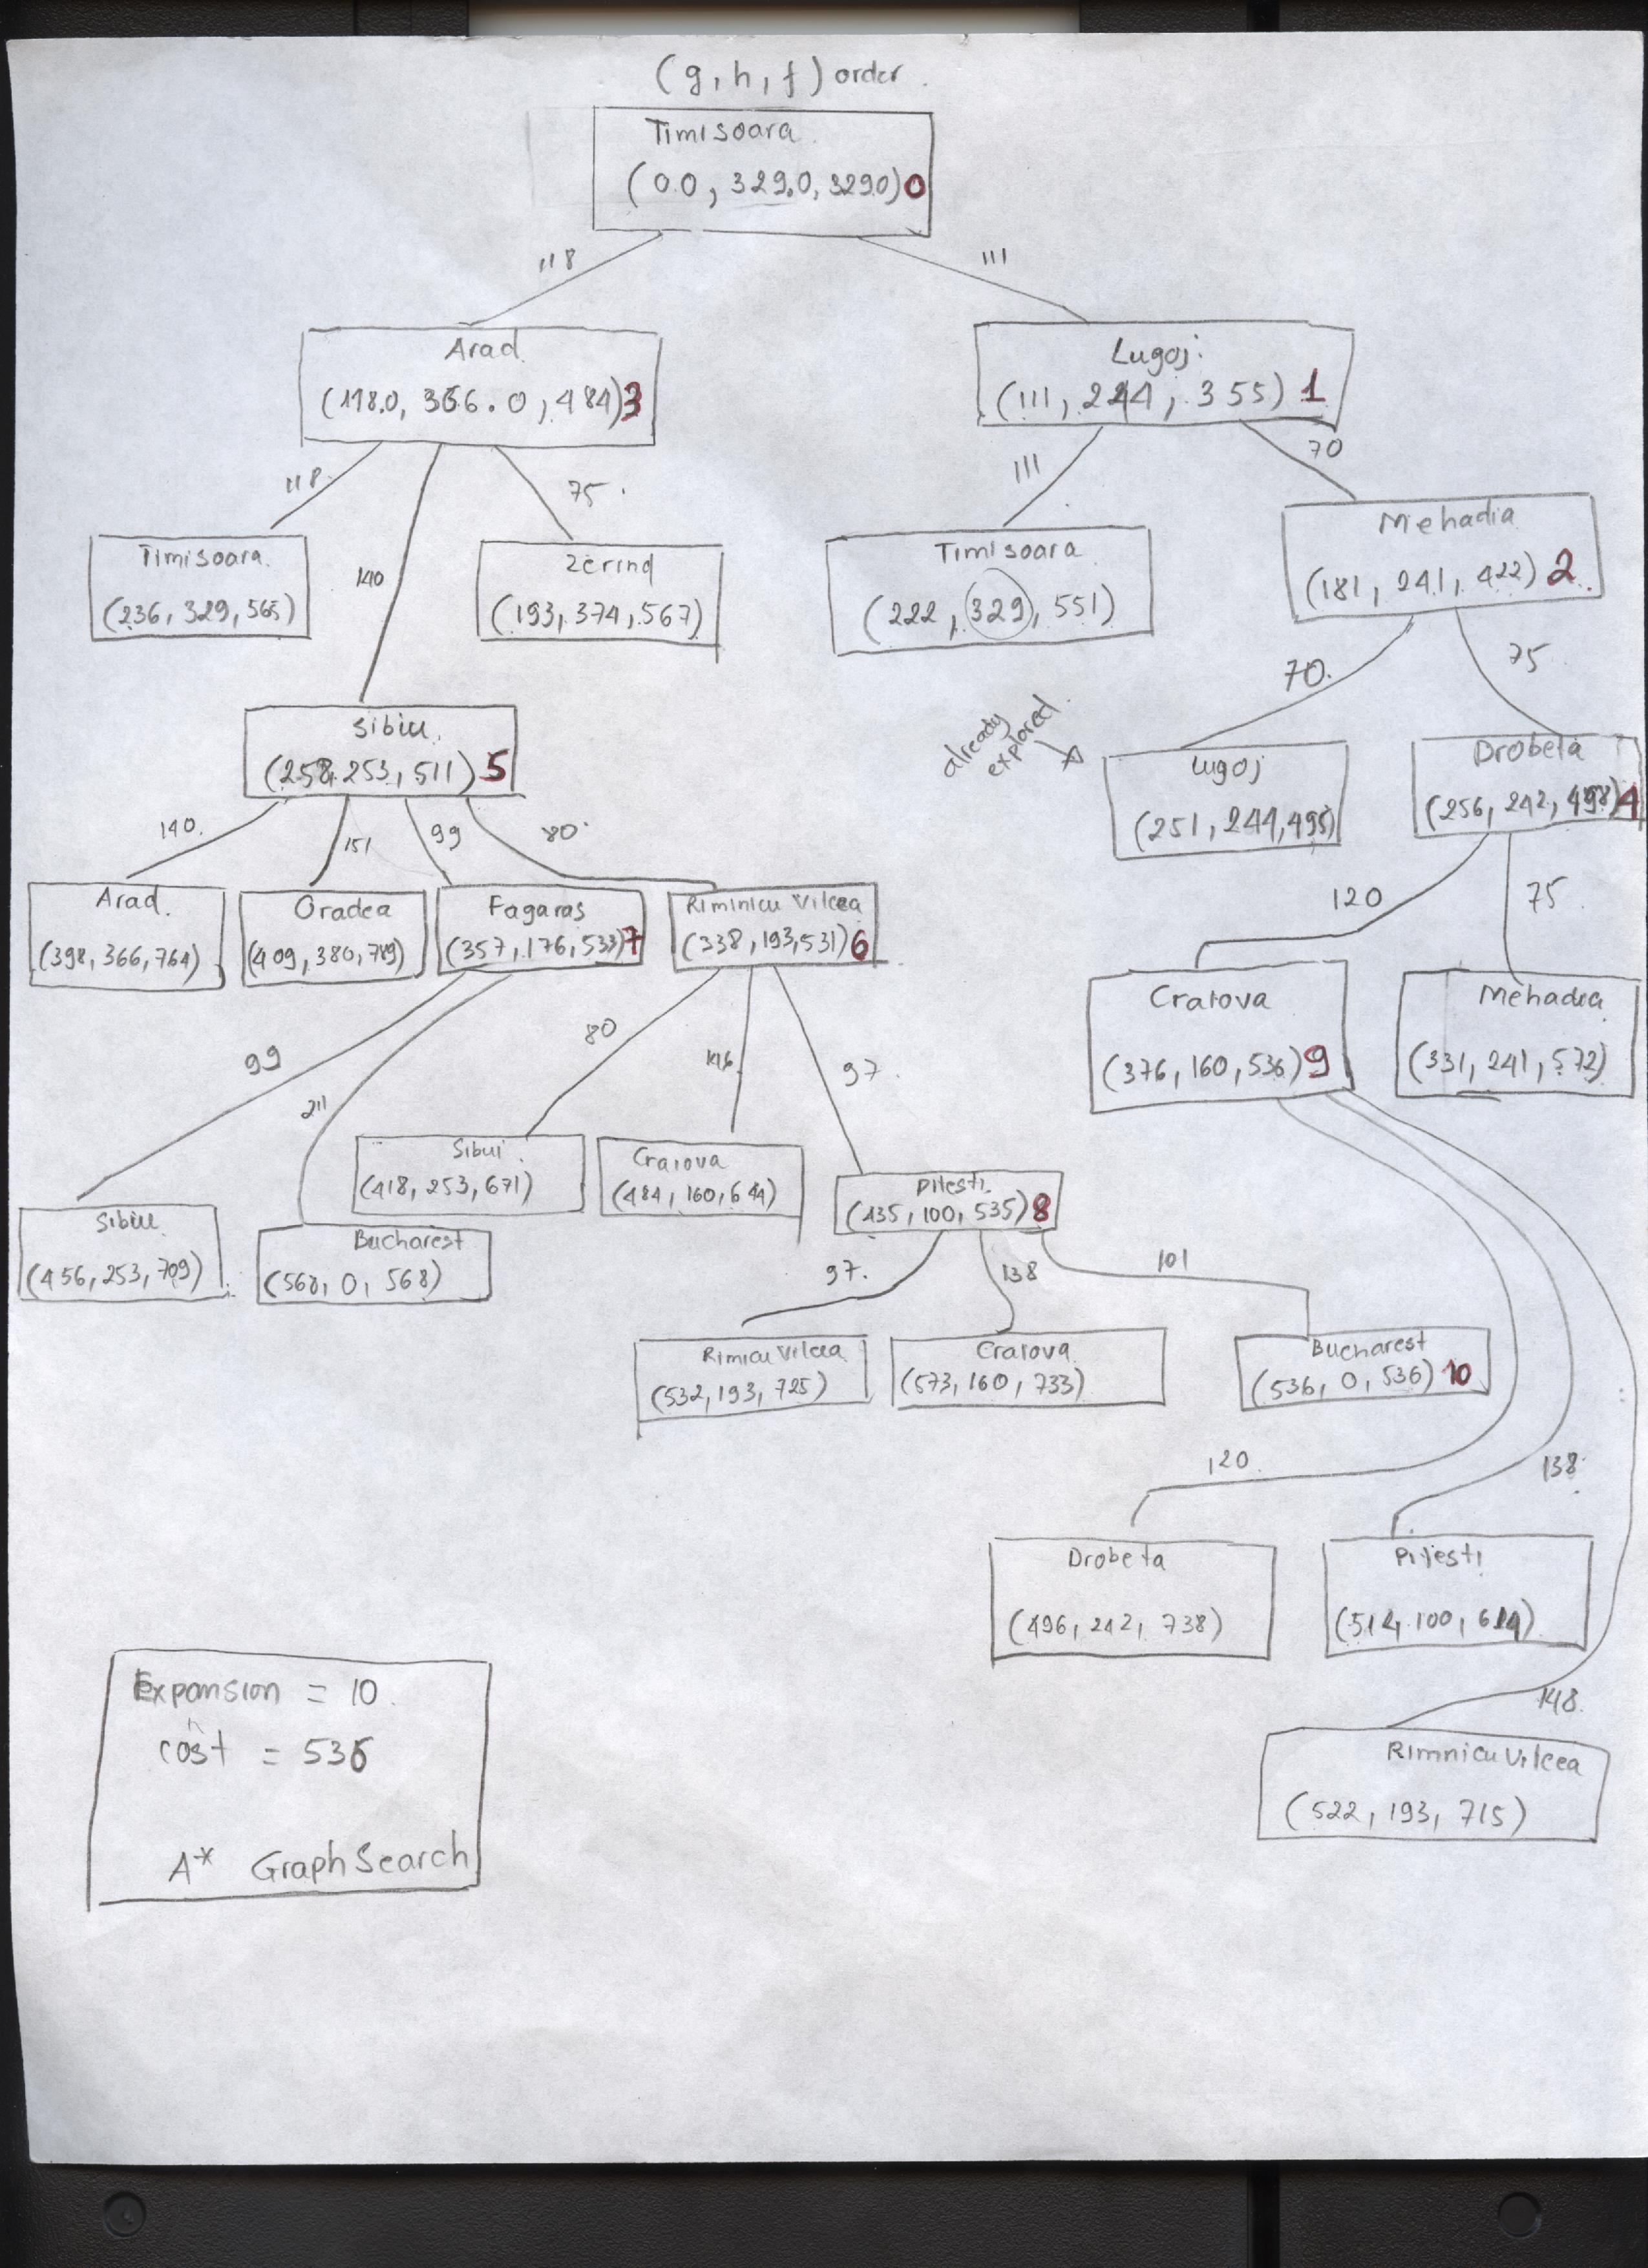 (g, h, f) order.
Timisoara
(0.0, 329.0, 329.0) 0
118
111
Arad
(118.0, 366.0, 484) 3
Lugoj
(111, 244, 355) 1
118
140
75
111
70
Timisoara
(236, 329, 565)
Zerind
(193, 374, 567)
Timisoara
(222, 329, 551)
Mehadia
(181, 241, 422) 2
70
75
already
explored
Sibiu
(258, 253, 511) 5
Lugoj
(251, 244, 495)
Drobeta
(256, 242, 498) 4
140
151
99
80
120
75
Arad
(398, 366, 764)
Oradea
(409, 380, 789)
Fagaras
(357, 176, 533) 7
Riminicu Vilcea
(338, 193, 531) 6
Craiova
(376, 160, 536) 9
Mehadia
(331, 241, 572)
99
211
80
146
97
Sibiu
(456, 253, 709)
Bucharest
(568, 0, 568)
Sibui
(418, 253, 671)
Craiova
(484, 160, 644)
Pitesti
(435, 100, 535) 8
97
138
101
Rimicu Vilcea
(532, 193, 725)
Craiova
(573, 160, 733)
Bucharest
(536, 0, 536) 10
120
138
Drobeta
(496, 242, 738)
Pitesti
(514, 100, 614)
148
Rimnicu Vilcea
(522, 193, 715)
Expansion = 10
cost = 536
A* GraphSearch